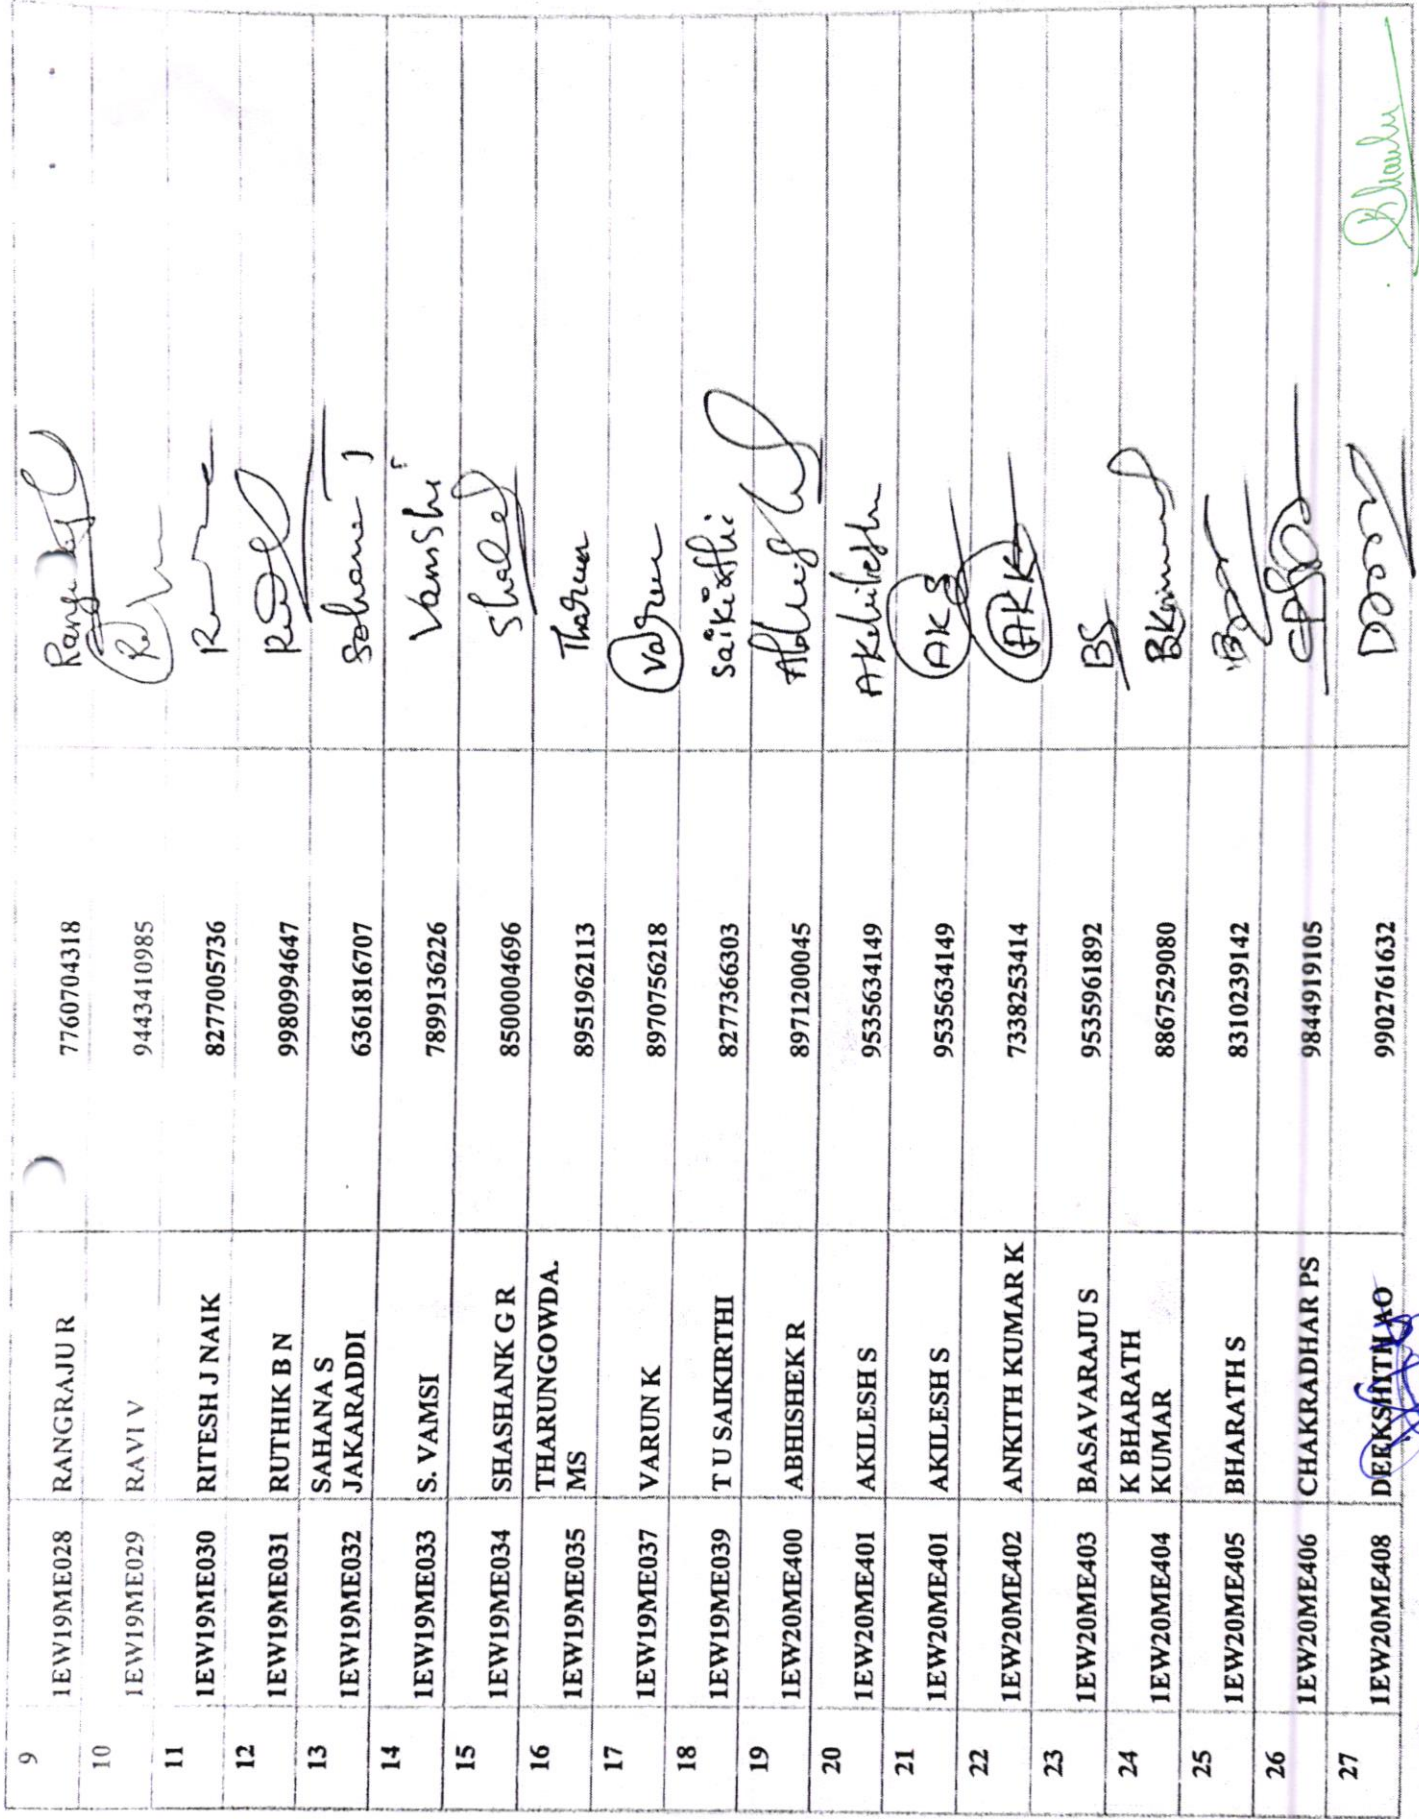 9 1EW19ME028 RANGRAJU R 7760704318
10 1EW19ME029 RAVI V 9443410985
11 1EW19ME030 RITESH J NAIK 8277005736
12 1EW19ME031 RUTHIK B N 9980994647
13 1EW19ME032 SAHANA S
JAKARADDI 6361816707 Sahana J
14 1EW19ME033 S. VAMSI 7899136226 Vamshi
15 1EW19ME034 SHASHANK G R 8500004696
16 1EW19ME035 THARUNGOWDA.
MS 8951962113 Tharun
17 1EW19ME037 VARUN K 8970756218 Varun
18 1EW19ME039 T U SAIKIRTHI 8277366303 Saikirthi
19 1EW20ME400 ABHISHEK R 8971200045
20 1EW20ME401 AKILESH S 9535634149
21 1EW20ME401 AKILESH S 9535634149 AKS
22 1EW20ME402 ANKITH KUMAR K 7338253414 AKK
23 1EW20ME403 BASAVARAJU S 9535961892 BS
24 1EW20ME404 K BHARATH
KUMAR 8867529080
25 1EW20ME405 BHARATH S 8310239142
26 1EW20ME406 CHAKRADHAR PS 9844919105
27 1EW20ME408 9902761632